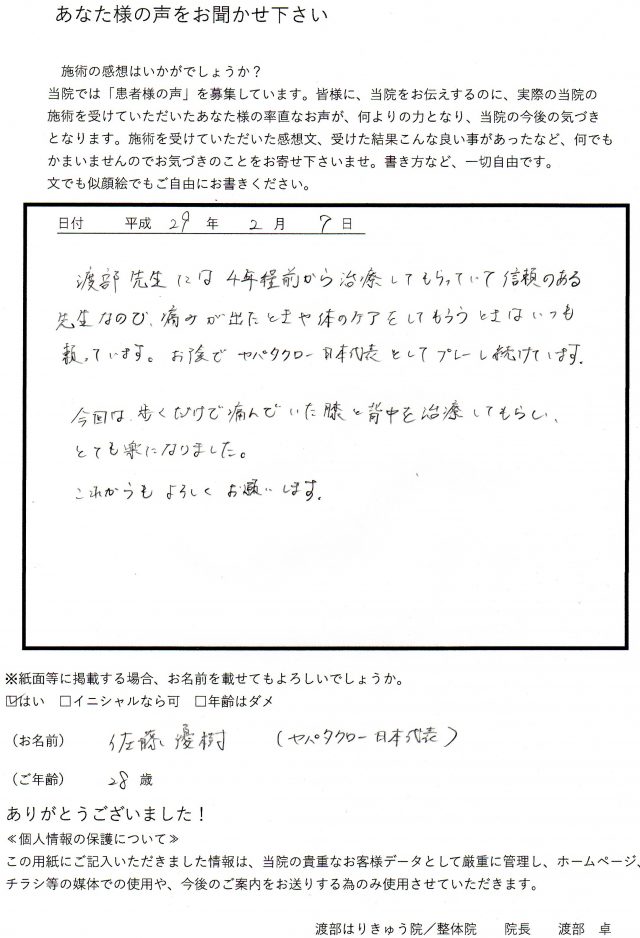 あなた様の声をお聞かせ下さい
施術の感想はいかがでしょうか？
当院では「患者様の声」を募集しています。皆様に、当院をお伝えするのに、実際の当院の
施術を受けていただいたあなた様の率直なお声が、何よりの力となり、当院の今後の気づき
となります。施術を受けていただいた感想文、受けた結果こんな良い事があったなど、何でも
かまいませんのでお気づきのことをお寄せ下さいませ。書き方など、一切自由です。
文でも似顔絵でもご自由にお書きください。
日付　平成 29 年 2 月 7 日
渡部先生には4年程前から治療してもらっていて信頼のある
先生なので、痛みが出たときや体のケアをしてもらうときはいつも
頼っています。お陰でセパタクロー日本代表としてプレーし続けています。
今回は、歩くだけで痛んでいた膝と背中を治療してもらい、
とても楽になりました。
これからもよろしくお願いします。
※紙面等に掲載する場合、お名前を載せてもよろしいでしょうか。
☑はい　□イニシャルなら可　□年齢はダメ
（お名前）　佐藤 優樹　（セパタクロー日本代表）
（ご年齢）　28 歳
ありがとうございました！
≪個人情報の保護について≫
この用紙にご記入いただきました情報は、当院の貴重なお客様データとして厳重に管理し、ホームページ、
チラシ等の媒体での使用や、今後のご案内をお送りする為のみ使用させていただきます。
渡部はりきゅう院／整体院　院長　渡部　卓